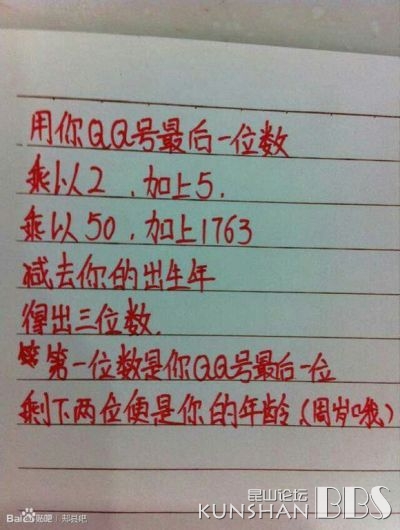 用你QQ号最后一位数
乘以2,加上5.
乘以50,加上1763
减去你的出生年
得出三位数.
第一位数是你QQ号最后一位
剩下两位便是你的年龄(周岁哦)
Bai贴吧|郏县吧
昆山论坛
KUNSHAN BBS